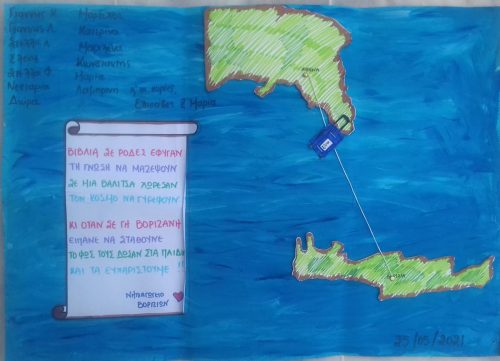 Γιάννης Κ. Μαρτίνα
Γιάννης Λ. Κατερίνα
Στέλλα Λ. Μαριλένα
Κωνσταντής
Στέλλα Φ. Μαρία
Νεκταρία
Δώρα Ελισάβετ & Μαρία
ΒΙΒΛΙΑ ΣΕ ΡΟΔΕΣ ΕΦΥΓΑΝ
ΤΗ ΓΝΩΣΗ ΝΑ ΜΑΖΕΨΟΥΝ
ΣΕ ΜΙΑ ΒΑΛΙΤΣΑ ΧΩΡΕΣΑΝ
ΤΟΝ ΚΟΣΜΟ ΝΑ ΓΥΡΕΨΟΥΝ
ΚΙ ΟΤΑΝ ΣΕ ΓΗ ΒΟΡΙΖΑΝΗ
ΕΙΠΑΝΕ ΝΑ ΣΤΑΘΟΥΝΕ
ΤΟ ΦΩΣ ΤΟΥΣ ΔΩΣΑΝ ΣΤΑ ΠΑΙΔΙΑ
ΚΑΙ ΤΑ ΕΥΧΑΡΙΣΤΟΥΜΕ !!
ΝΗΠΙΑΓΩΓΕΙΟ
ΒΟΡΙΖΙΩΝ
25/05/2021